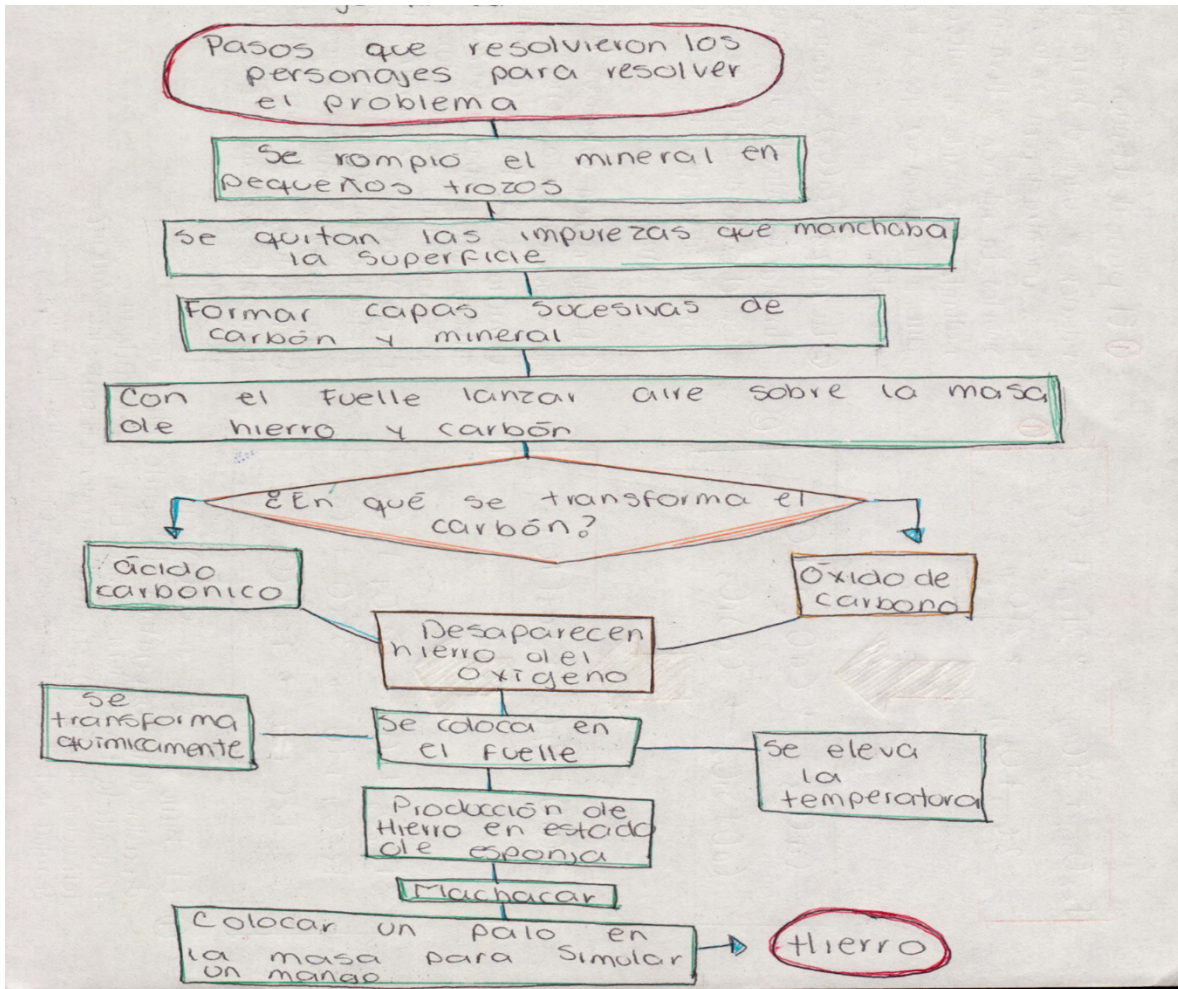 Pasos que resolvieron los
personajes para resolver
el problema
Se rompio el mineral en
pequeños trozos
se quitan las impurezas que manchaba
la superficie
Formar capas sucesivas de
carbón y mineral
Con el Fuelle lanzar aire sobre la masa
de hierro y carbón
¿En qué se transforma el
carbón?
ácido
carbonico
Óxido de
carbono
Desaparecen
hierro del
oxígeno
Se
transforma
químicamente
Se coloca en
el Fuelle
Se eleva
la
temperatura
Producción de
Hierro en estado
de esponja
Machacar
Colocar un palo en
la masa para simular
un mango
Hierro